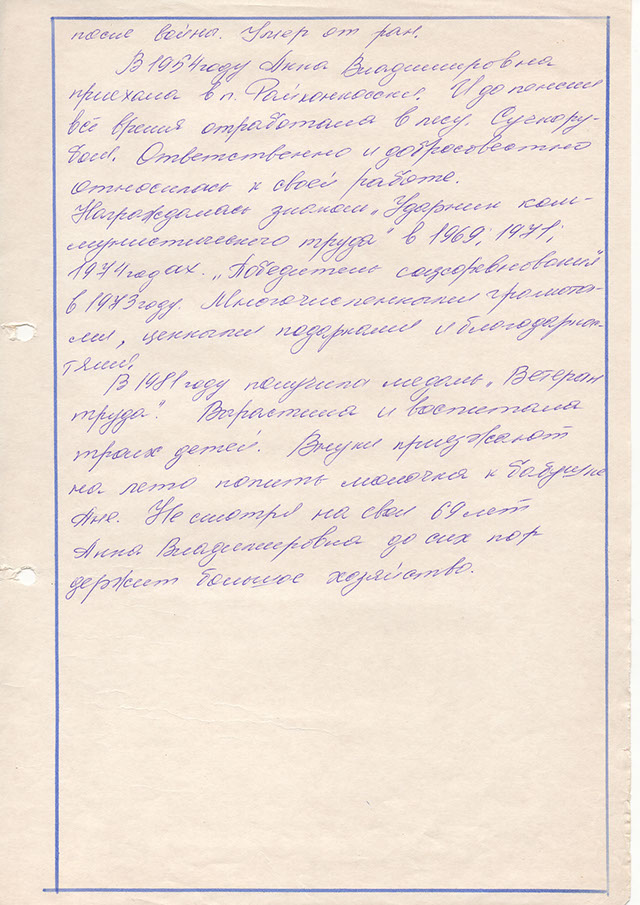 после война. Умер от ран.
В 1954 году Анна Владимировна
приехала в п. Райконкоски. И до пенсии
всё время отработала в лесу. Сучкору-
бом. Ответственно и добросовестно
относилась к своей работе.
Награждалась знаком „Ударник ком-
мунистического труда" в 1969; 1971;
1974 годах. „Победитель соцсоревнования"
в 1973 году. Многочисленными грамота-
ми, ценными подарками и благодарнос-
тями.
В 1981 году получила медаль „Ветеран
труда". Вырастила и воспитала
троих детей. Внуки приезжают
на лето попить молочка к бабушке
Ане. Не смотря на свои 69 лет
Анна Владимировна до сих пор
держит большое хозяйство.